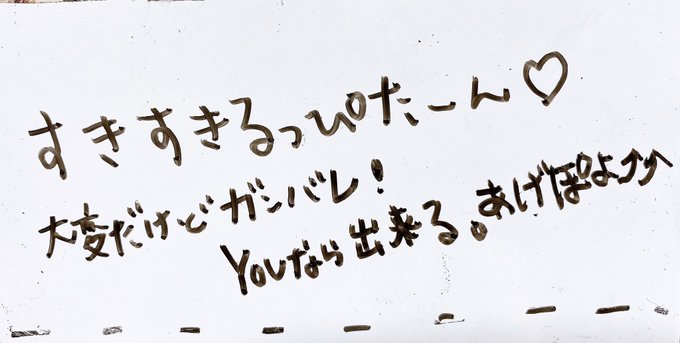 すきすきるっぴたーん♡
大変だけどガンバレ!
Youなら出来る。あげぽよ⤴⤴